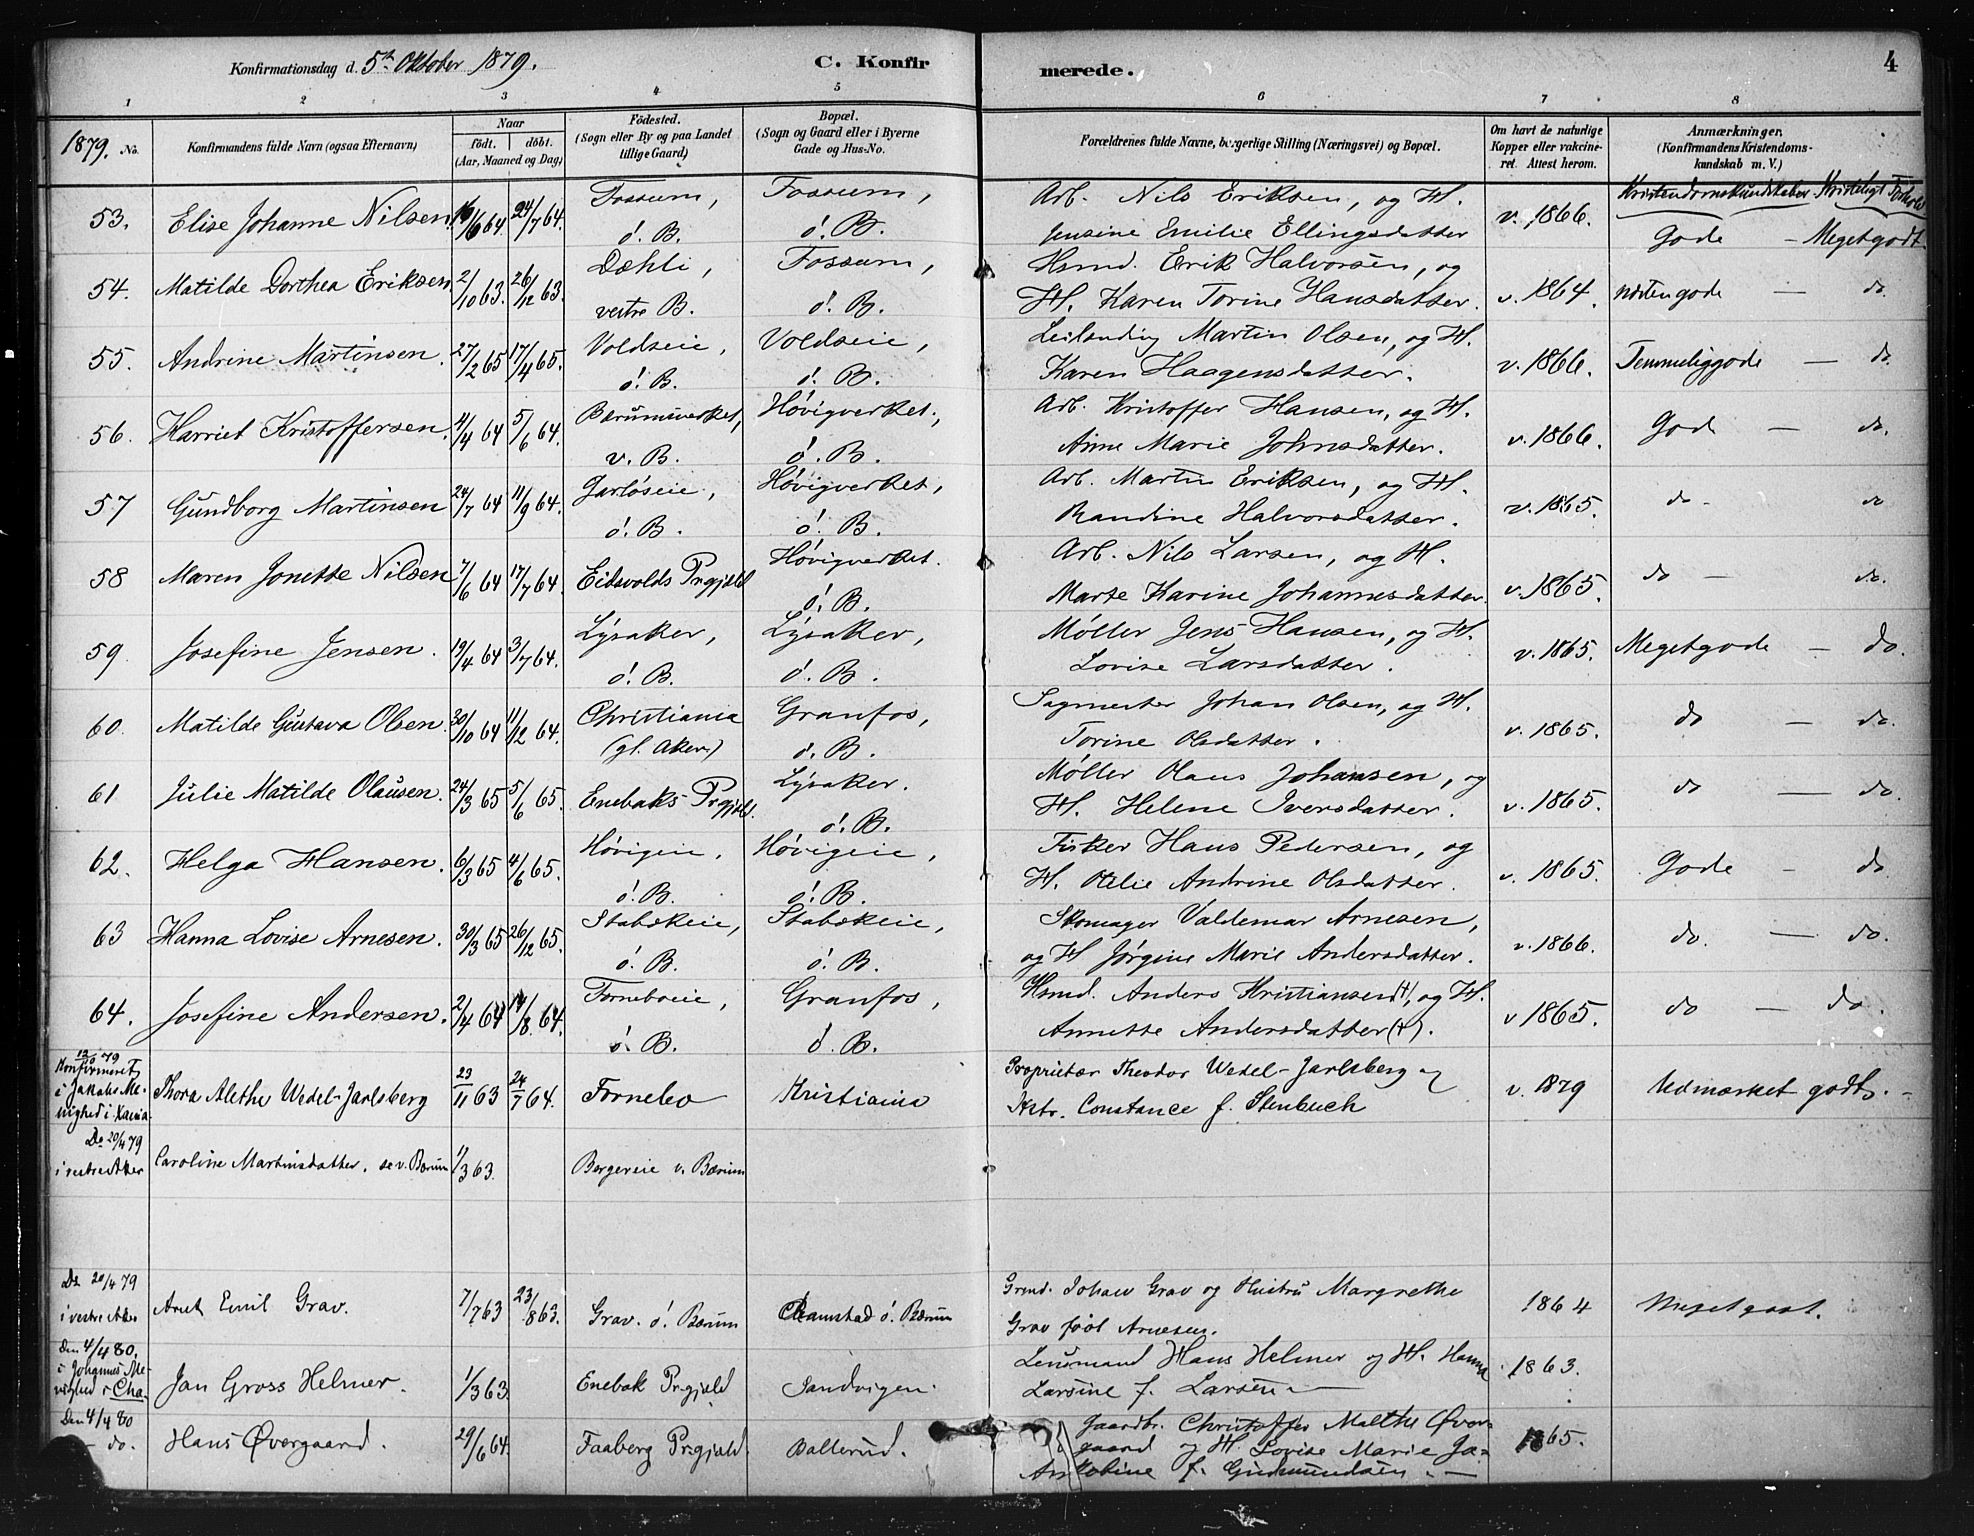 Konfirmationsdag d. 5te Oktober 1879.
C. Konfir
merede.
4
1 2 3 4 5 6 7 8
1879. No.
Konfirmandens fulde Navn (ogsaa Efternavn)
Naar
født. døbt.
(Aar, Maaned og Dag)
Födested.
(Sogn eller By og paa Landet
tillige Gaard)
Bopæl.
(Sogn og Gaard eller i Byerne
Gade og Hus-No.
Forældrenes fulde Navne, borgerlige Stilling (Næringsvei) og Bopæl.
Om havt de naturlige
Kopper eller vakcine-
ret. Attest herom.
Anmærkninger.
(Konfirmandens Kristendoms-
kundskab m. V.)
Kristendomskundskaber Kristeligt Forhold
53. Elise Johanne Nilsen 16/6 64 24/7 64. Fossum, ö. B. Fossum, ö. B. Arb. Nils Eriksen, og H.
Jensine Emilie Ellingsdatter v. 1866. Gode – Megetgodt
54. Matilde Dorthea Eriksen 2/10 63. 26/12 63. Dæhli, vestre B. Fossum, ö. B. Hsmd. Erik Halvorsen, og
H. Karen Torine Hansdatter. v. 1864. næsten gode – do.
55. Andrine Martinsen. 27/2 65 17/4 65. Voldseie, ö. B. Voldseie, ö. B. Leilending Martin Olsen, og H.
Karen Haagensdatter. v. 1866. Temmeliggode – do
56. Harriet Kristoffersen. 11/4 64 5/6 64. Bærumsverket, v. B. Høvigverket, ö. B. Arb. Kristoffer Hansen, og H.
Anne Marie Johnsdatter. v. 1866. Gode – do.
57 Gundborg Martinsen 24/7 64 11/9 64. Jarlöseie, ö. B. Høvigverket, ö. B. Arb. Martin Eriksen, og H.
Randine Halvorsdatter. v. 1865. do – do
58 Maren Jonette Nilsen 7/6 64 17/7 64. Eidsvolds Prgjæld Høvigverket. ö. B. Arb. Nils Larsen, og H.
Marte Karine Johannesdatter. v. 1865. do – do.
59 Josefine Jensen. 19/4 64 3/7 64. Lysaker, ö. B. Lysaker, ö. B. Møller Jens Hansen, og H.
Lovise Larsdatter. v. 1865. Megetgode – do.
60. Matilde Gustava Olsen. 30/10 64 11/12 64. Christiania (gl. Aker) Granfos, ö. B. Sagmester Johan Olsen, og H.
Torine Olsdatter. v. 1865. do – do.
61 Julie Matilde Olausen. 24/3 65 5/6 65. Enebaks Prgjæld. Lysaker. ö. B. Møller Olaus Johansen, og
H. Helene Iversdatter. v. 1865. do – do.
62. Helga Hansen. 6/3 65 4/6 65. Høvigeie, ö. B. Høvigeie, ö. B. Fisker Hans Pedersen, og
H. Otilie Andrine Olsdatter. v. 1865. Gode – do
63 Hanna Lovise Arnesen. 30/3 65 26/12 65. Stabækeie, ö. B. Stabækeie, ö. B. Skomager Valdemar Arnesen,
og H Jørgine Marie Andersdatter. v. 1866. do. – do.
64. Josefine Andersen. 2/4 64 14/8 64. Forneboeie, ö. B. Granfos, ö. B. Hsmd. Anders Kristiansen(†), og H.
Annette Andersdatter(†). v 1865. do – do.
Konfirmeret
i Jakobs Me-
nighed i Xania Thora Alethe Wedel-Jarlsberg 23/11 63 24/7 64. Fornebo Kristiania Proprietær Theodor Wedel-Jarlsberg og
Hstr. Constance f. Stenbuch v. 1879 Udmærket godt. –
Do 20/4 79
i vestre Aker Caroline Martinsdatter. se v. Bærum 1/3 63. Bergereie v. Bærum
Do 20/4 79
i vestre Aker Arnt Emil Grav. 7/7 63 23/8 63. Grav. ö. Bærum Ramstad ö. Bærum Grmd. Johan Grav og Hustru Margrethe
Grav født Arnesen. 1864 Meget godt.
Den 4/4 80.
i Johannes Me-
nighed i Cha. Jan Gross Helmer. 1/3 63. Enebak Prgjæld Sandvigen. Lensmand Hans Helmer og H. Hanna
Larsine f. Larsen – 1863.
Den 4/4 80
– do. Hans Øvergaard. 29/6 64. Faaberg Prgjæld Ballerud. Gaardbr. Christoffer Malthe Øver-
gaard og H. Lovise Marie Ja-
kobine f. Gudmundsen. – 1865.